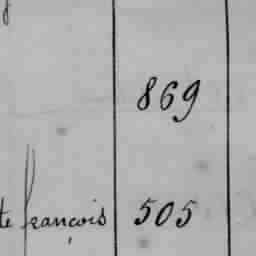 869
françois 505